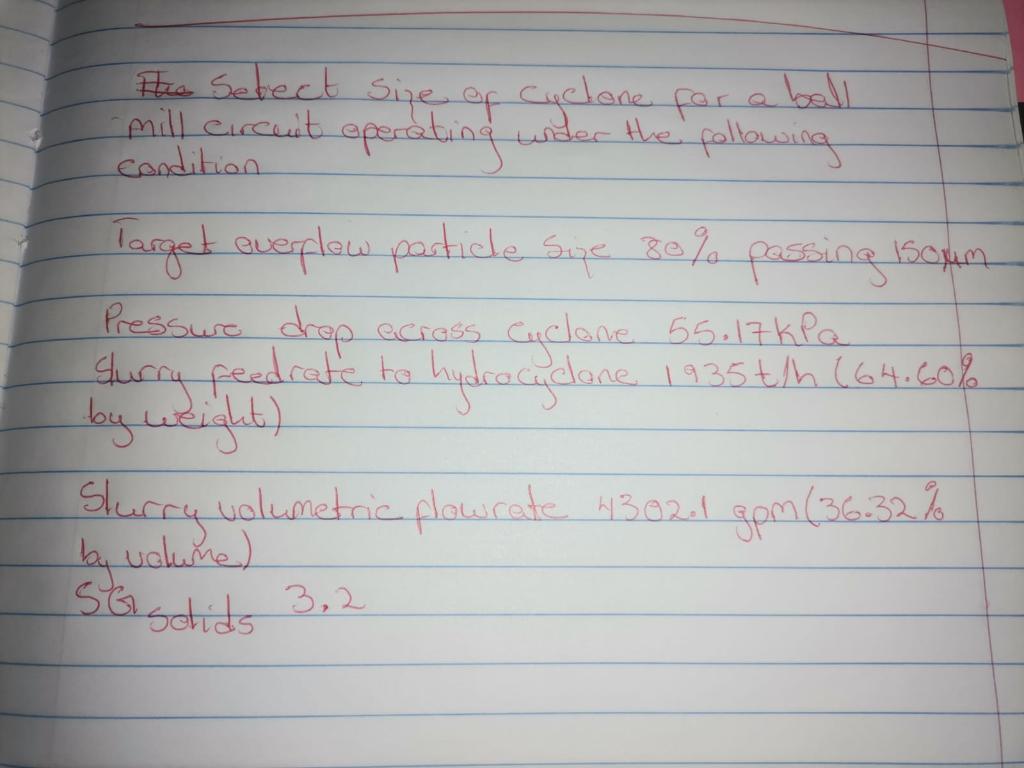 Select Size of Cyclone for a ball
mill circuit operating under the following
condition
Target overflow particle size 80% passing 150µm
Pressure drop across cyclone 55.17kPa
Slurry feedrate to hydrocyclone 1935t/h (64.60%
by weight)
Slurry volumetric flowrate 4302.1 gpm (36.32%
by volume)
SG solids 3.2